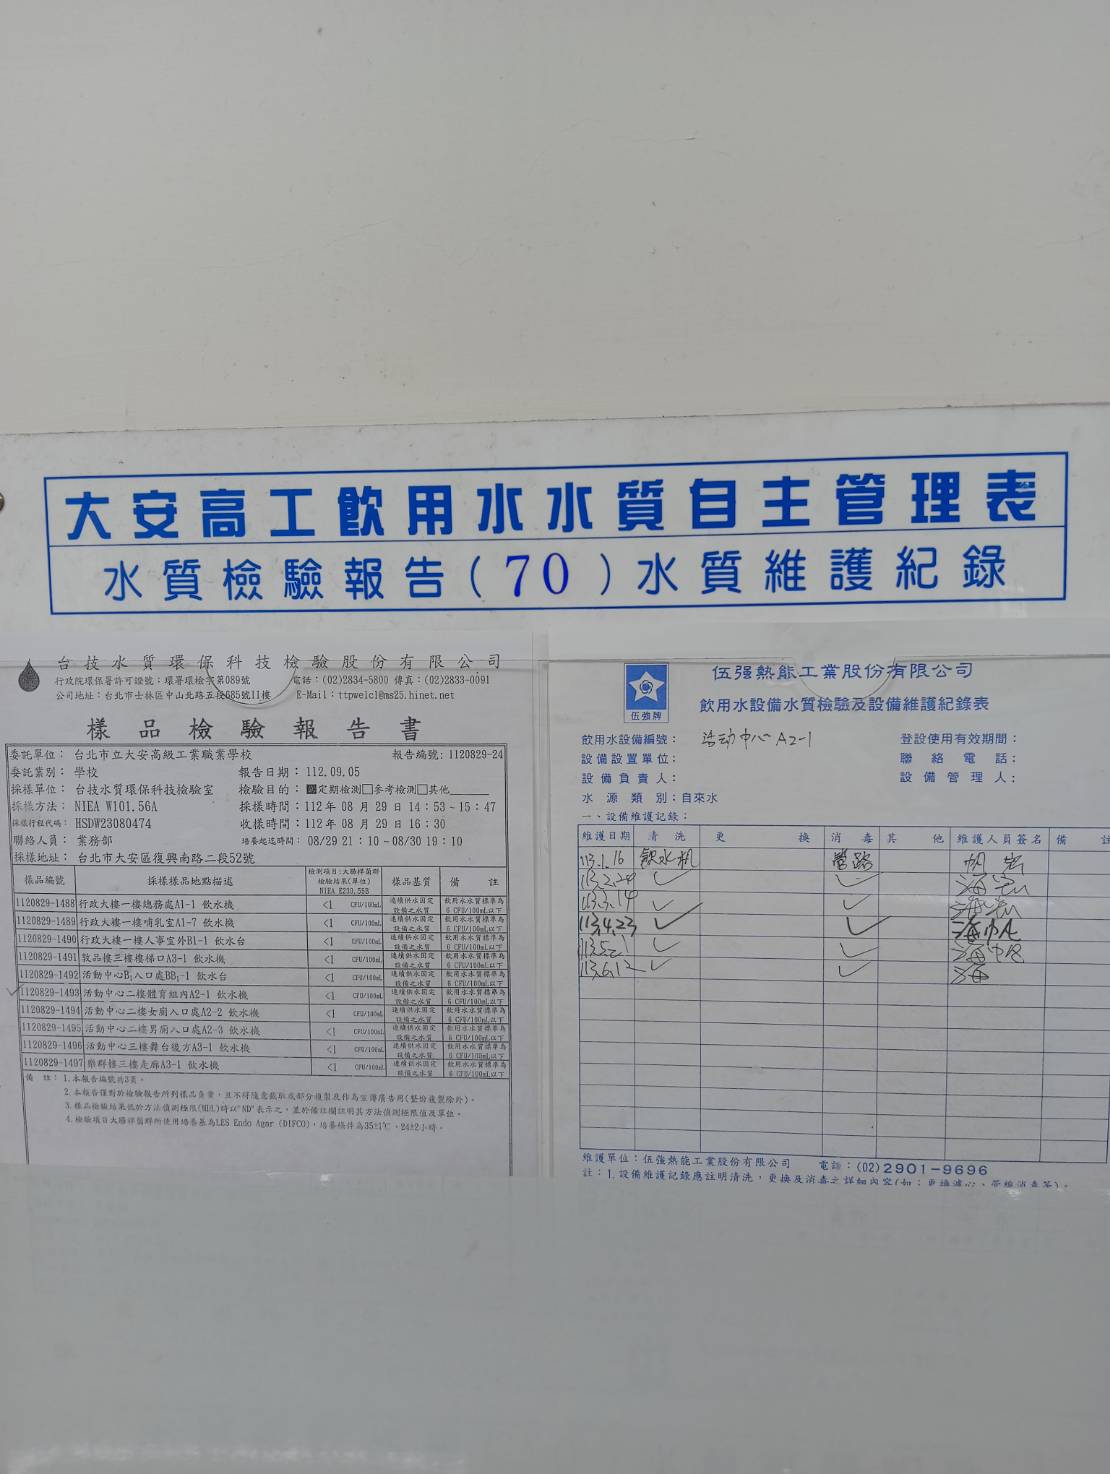 大安高工飲用水水質自主管理表
水質檢驗報告(70)水質維護紀錄
台技水質環保科技檢驗股份有限公司
行政院環保署許可證號：環署環檢字第089號 電話：(02)2834-5800 傳真：(02)2833-0091
公司地址：台北市士林區中山北路五段685號11樓 E-Mail：ttpwelcl@ms25.hinet.net
樣品檢驗報告書
委託單位：台北市立大安高級工業職業學校 報告編號：1120829-24
委託業別：學校 報告日期：112.09.05
採樣單位：台技水質環保科技檢驗室 檢驗目的：定期檢測□參考檢測□其他
採樣方法：NIEA W101.56A 採樣時間：112年08月29日14：53~15：47
採樣行程代碼：HSDW23080474 收樣時間：112年08月29日16：30
聯絡人員：業務部 培養起迄時間：08/29 21：10~08/30 19：10
採樣地址：台北市大安區復興南路二段52號
樣品編號 採樣樣品地點描述 檢測項目:大腸桿菌群 檢驗結果(單位) NIEA E230.55B 樣品基質 備註
1120829-1488 行政大樓一樓總務處A1-1 飲水機 <1 CFU/100mL 連續供水固定設備之水質 飲用水水質標準為6 CFU/100mL以下
1120829-1489 行政大樓一樓哺乳室A1-7 飲水機 <1 CFU/100mL 連續供水固定設備之水質 飲用水水質標準為6 CFU/100mL以下
1120829-1490 行政大樓一樓人事室外B1-1 飲水台 <1 CFU/100mL 連續供水固定設備之水質 飲用水水質標準為6 CFU/100mL以下
1120829-1491 敦品樓三樓樓梯口A3-1 飲水機 <1 CFU/100mL 連續供水固定設備之水質 飲用水水質標準為6 CFU/100mL以下
1120829-1492 活動中心B1入口處BB1-1 飲水台 <1 CFU/100mL 連續供水固定設備之水質 飲用水水質標準為6 CFU/100mL以下
1120829-1493 活動中心二樓體育組內A2-1 飲水機 <1 CFU/100mL 連續供水固定設備之水質 飲用水水質標準為6 CFU/100mL以下
1120829-1494 活動中心二樓女廁入口處A2-2 飲水機 <1 CFU/100mL 連續供水固定設備之水質 飲用水水質標準為6 CFU/100mL以下
1120829-1495 活動中心二樓男廁入口處A2-3 飲水機 <1 CFU/100mL 連續供水固定設備之水質 飲用水水質標準為6 CFU/100mL以下
1120829-1496 活動中心三樓舞台後方A3-1 飲水機 <1 CFU/100mL 連續供水固定設備之水質 飲用水水質標準為6 CFU/100mL以下
1120829-1497 樂群樓三樓走廊A3-1 飲水機 <1 CFU/100mL 連續供水固定設備之水質 飲用水水質標準為6 CFU/100mL以下
備註：1.本報告編號共3頁。
2.本報告僅對於檢驗報告所列樣品負責，且不得隨意截取或部分複製及作為宣傳廣告用(整份複製除外)。
3.樣品檢驗結果低於方法偵測極限(MDL)時以"ND"表示之，並於備註欄註明其方法偵測極限值及單位。
4.檢驗項目大腸桿菌群所使用培養基為LES Endo Agar (DIFCO)，培養條件為35±1℃、24±2小時。
伍強牌
伍强熱能工業股份有限公司
飲用水設備水質檢驗及設備維護紀錄表
飲用水設備編號：活动中心A2-1 登設使用有效期間：
設備設置單位： 聯絡電話：
設備負責人： 設備管理人：
水源類別：自來水
一、設備維護記錄：
維護日期 清洗 更換 消毒 其他 維護人員簽名 備註
113.1.16 飲水机 管路
113.2.24 ✓ ✓
113.3.14 ✓ ✓
113.4.23 ✓ ✓
113.5.21 ✓ ✓
113.6.12 ✓ ✓
維護單位：伍強熱能工業股份有限公司 電話：(02)2901-9696
註：1.設備維護記錄應註明清洗，更換及消毒之詳細內容(如：更換濾心、管線消毒等)。